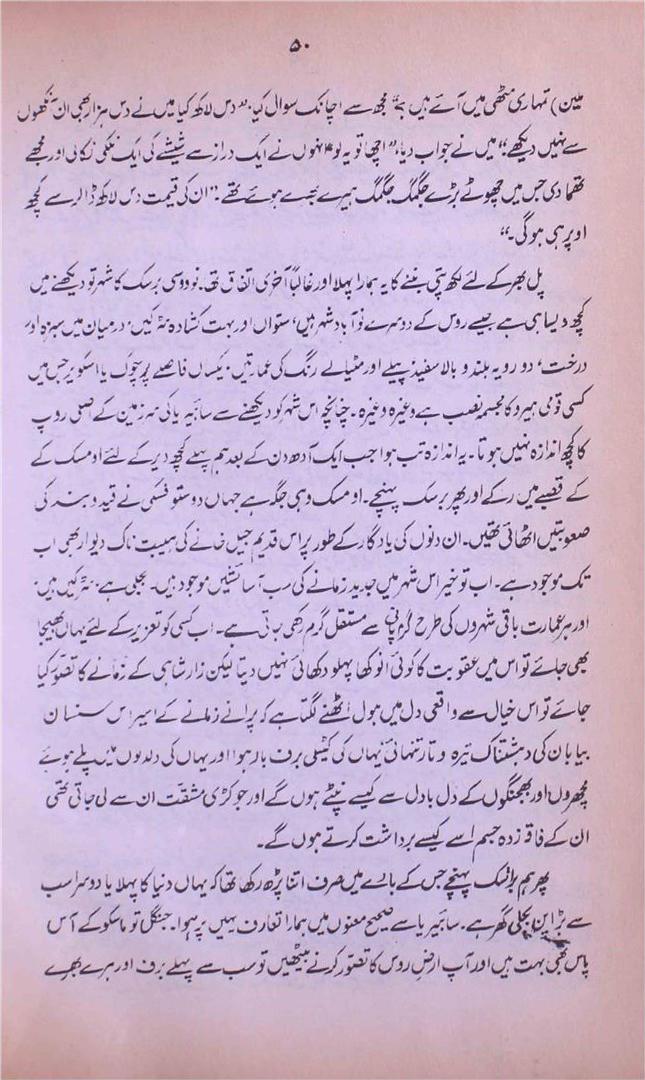 ۵۰
ملین) تمہاری مٹھی میں آئے ہیں؟“ مجھ سے اچانک سوال کیا۔ ”دس لاکھ کیا میں نے دس ہزار بھی ان آنکھوں
سے نہیں دیکھے“ میں نے جواب دیا۔ ”اچھا تو یہ لو“ انہوں نے ایک دراز سے شیشے کی ایک نلکی نکالی اور مجھے
تھما دی جس میں چھوٹے بڑے جگمگ جگمگ ہیرے بھرے ہوئے تھے۔ ”ان کی قیمت دس لاکھ ڈالر سے کچھ
اوپر ہی ہوگی۔“
پل بھر کے لئے لکھ پتی بننے کا یہ ہمارا پہلا اور غالباً آخری اتفاق تھا۔ نووسی برسک کا شہر تو دیکھنے میں
کچھ ویسا ہی ہے جیسے روس کے دوسرے نو آباد شہر ہیں، ستواں اور بہت کشادہ سڑکیں، درمیان میں سبزہ اور
درخت، دو رویہ بلند و بالا سفید پیلے اور مٹیالے رنگ کی عمارتیں، یکساں فاصلے پر چوک یا اسکویر جس میں
کسی قومی ہیرو کا مجسمہ نصب ہے وغیرہ وغیرہ۔ چنانچہ اس شہر کو دیکھنے سے سائبیریا کی سرزمین کے اصلی روپ
کا کچھ اندازہ نہیں ہوتا۔ یہ اندازہ تب ہوا جب ایک آدھ دن کے بعد ہم پہلے کچھ دیر کے لئے اومسک کے
کے قصبے میں رکے اور پھر برسک پہنچے۔ اومسک وہی جگہ ہے جہاں دوستوفسکی نے قید و بند کی
صعوبتیں اٹھائی تھیں۔ ان دنوں کی یادگار کے طور پر اس قدیم جیل خانے کی ہیبت ناک دیوار بھی اب
تک موجود ہے۔ اب تو خیر اس شہر میں جدید زمانے کی سب آسائشیں موجود ہیں۔ بجلی ہے، سڑکیں ہیں،
اور ہر عمارت باقی شہروں کی طرح گرم پانی سے مستقل گرم رکھی جاتی ہے۔ اب کسی کو تعزیر کے لئے یہاں بھیجا
بھی جائے تو اس میں عقوبت کا کوئی انوکھا پہلو دکھائی نہیں دیتا لیکن زار شاہی کے زمانے کا تصور کیا
جائے تو اس خیال سے واقعی دل میں ہول اٹھنے لگتا ہے کہ پرانے زمانے کے اسیر اس سنسان
بیابان کی دہشتناک تیرہ و تار تنہائی یہاں کی کٹیلی برف بار ہوا اور یہاں کی دلدلوں میں پلے ہوئے
مچھروں اور بھنگوں کے دل بادل سے کیسے نپٹے ہوں گے اور جو کڑی مشقت ان سے لی جاتی تھی
ان کے فاقہ زدہ جسم اسے کیسے برداشت کرتے ہوں گے۔
پھر ہم براٹسک پہنچے جس کے بارے میں صرف اتنا پڑھ رکھا تھا کہ یہاں دنیا کا پہلا یا دوسرا سب
سے بڑا پن بجلی گھر ہے۔ سائبیریا سے صحیح معنوں میں ہمارا تعارف یہیں پر ہوا۔ جنگل تو ماسکو کے آس
پاس بھی بہت ہیں اور آپ ارضِ روس کا تصور کرنے بیٹھیں تو سب سے پہلے برف اور ہرے بھرے